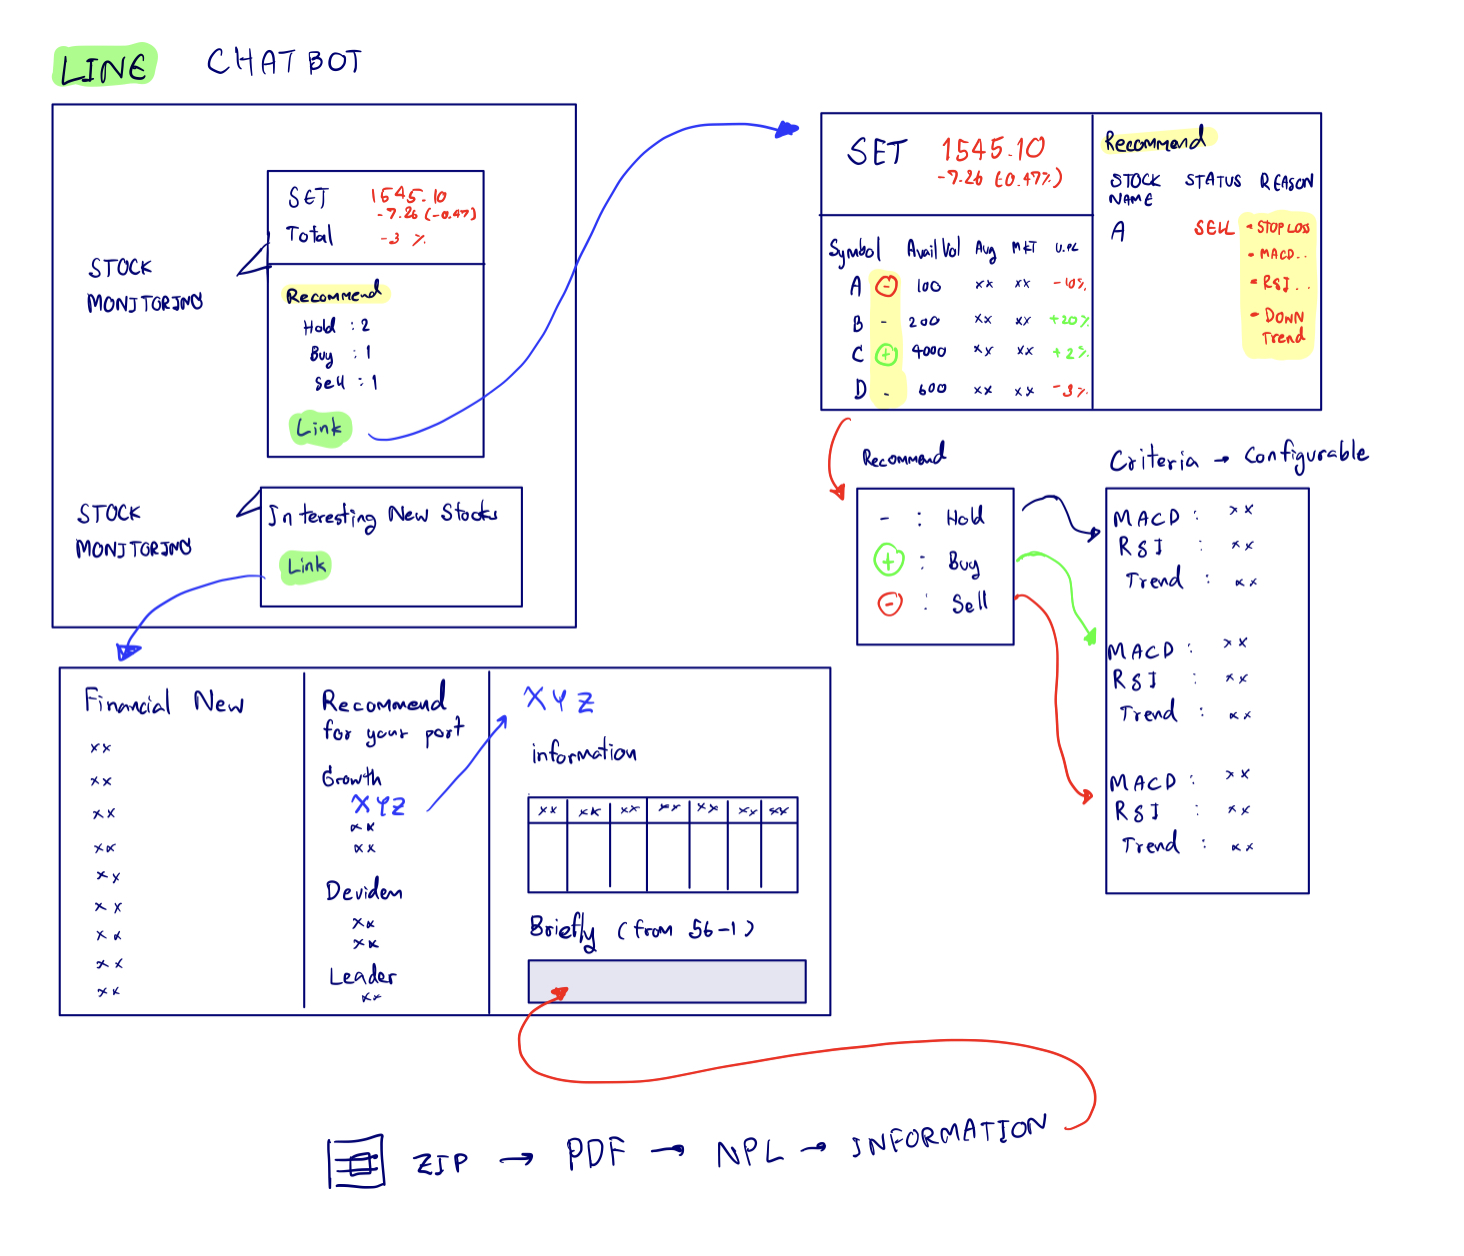 LINE CHATBOT
STOCK
MONITORING
SET 1545.10
-7.26 (-0.47)
Total -3 %
Recommend
Hold : 2
Buy : 1
Sell : 1
Link
STOCK
MONITORING
Interesting New Stocks
Link
SET 1545.10
-7.26 (-0.47%)
Symbol Avail Vol Avg MKT U.PL
A - 100 xx xx -10%
B - 200 xx xx +20%
C + 4000 xx xx +2%
D - 600 xx xx -3%
Recommend
STOCK NAME STATUS REASON
A SELL - STOP LOSS
- MACD..
- RSI..
- DOWN
Trend
Recommend
- : Hold
+ : Buy
- : Sell
Criteria → Configurable
MACD : xx
RSI : xx
Trend : xx
MACD : xx
RSI : xx
Trend : xx
MACD : xx
RSI : xx
Trend : xx
Financial New
xx
xx
xx
xx
xx
xx
xx
xx
xx
Recommend
for your port
Growth
XYZ
xx
xx
Deviden
xx
xx
Leader
xx
XYZ
information
xx xx xx xx xx xx xx
Briefly (from 56-1)
ZIP → PDF → NPL → INFORMATION